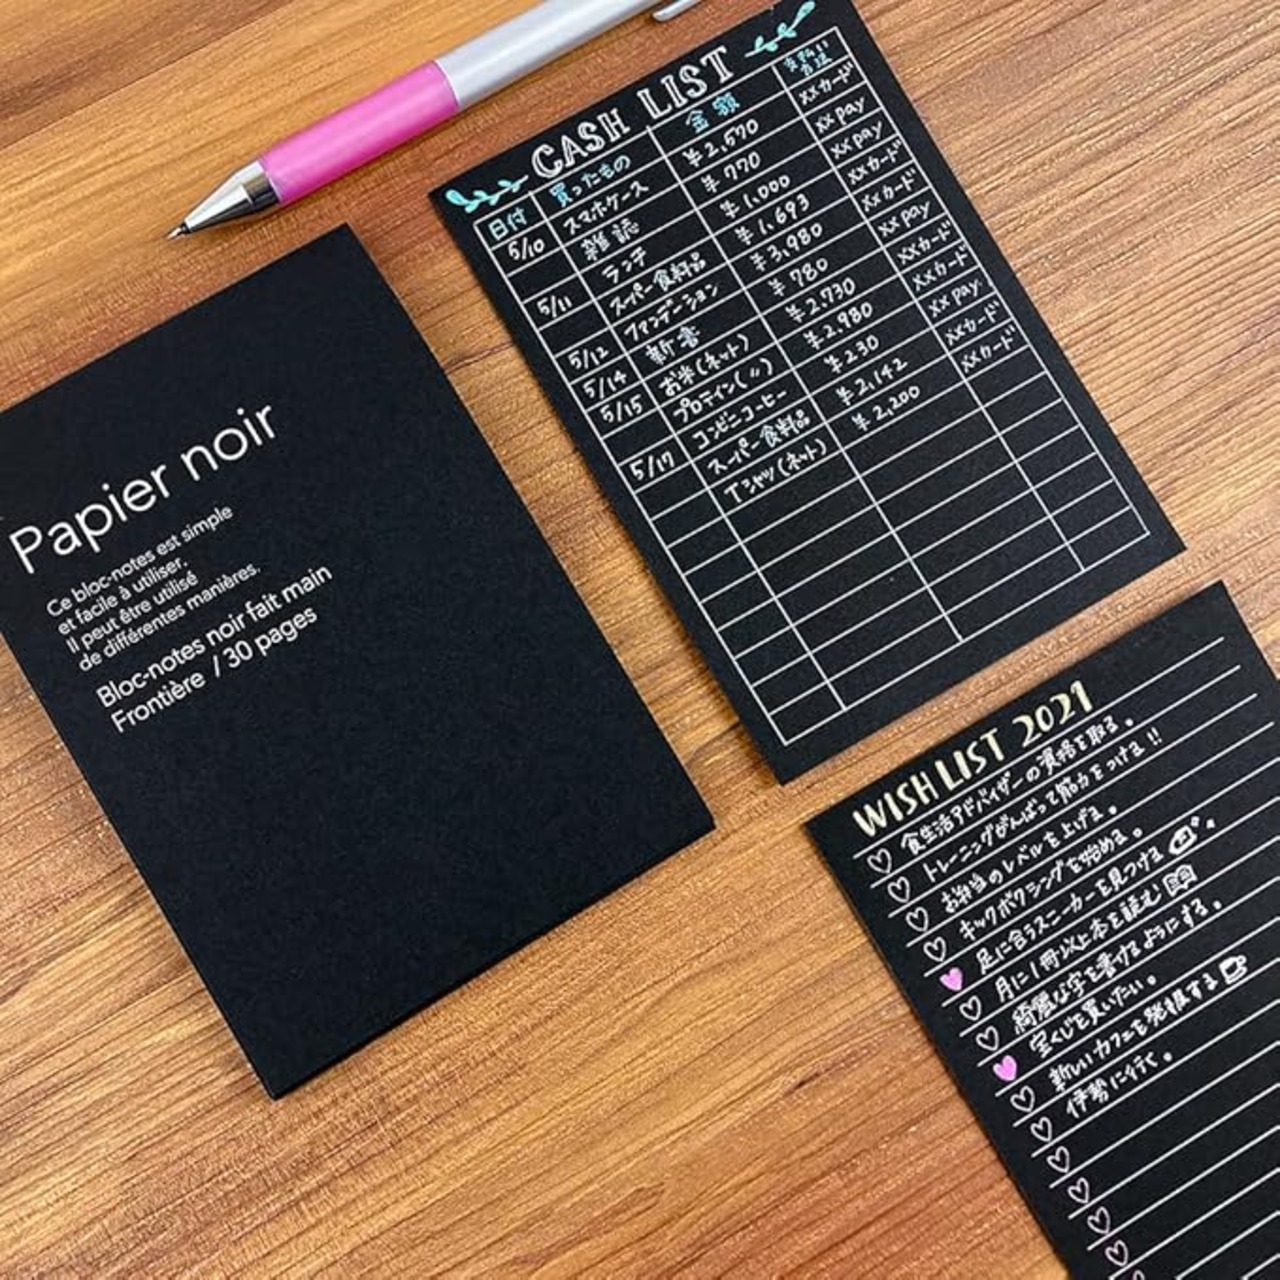 Papier noir
Ce bloc-notes est simple
et facile à utiliser.
Il peut être utilisé
de différentes manières.
Bloc-notes noir fait main
Frontière / 30 pages
CASH LIST
日付 買ったもの 金額 支払い方法
5/10 スマホケース ¥2,670 xxカード
雑誌 ¥770 xx pay
ランチ ¥1,000 xx pay
5/11 スーパー食料品 ¥1,693 xxカード
ファンデーション ¥3,980 xxカード
5/12 新書 ¥780 xx pay
5/14 お米(ネット) ¥2,730 xxカード
5/15 プロテイン(〃) ¥2,980 xxカード
コンビニコーヒー ¥230 xx pay.
5/17 スーパー食料品 ¥2,142 xxカード
Tシャツ(ネット) ¥2,200 xxカード
WISH LIST 2021
食生活アドバイザーの資格を取る。
トレーニングがんばって筋力をつける!!
お弁当のレベルを上げる。
キックボクシングを始める。
足に合うスニーカーを見つける
月に1冊以上本を読む
綺麗な字を書けるようにする。
宝くじを買いたい。
新しいカフェを発掘する
伊勢に行く。